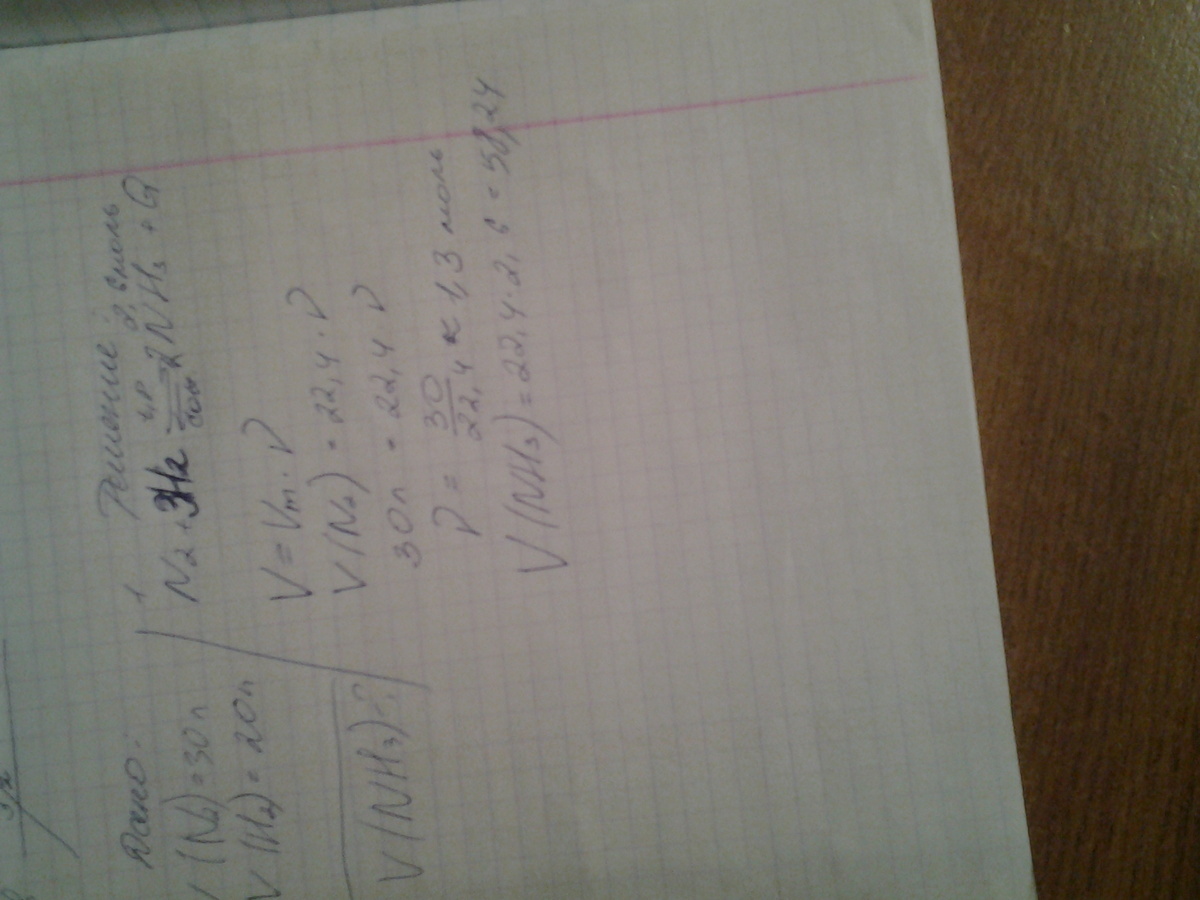 Дано:
V(N₂)=30л
V(H₂)=20л
V(NH₃)-?
Решение
1 2,6 моль
N₂+3H₂ ⇌ 2NH₃+Q
V=Vm·ν
V(N₂)=22,4·ν
30л=22,4·ν
ν=30/22,4≈1,3 моль
V(NH₃)=22,4·2,6=58,24